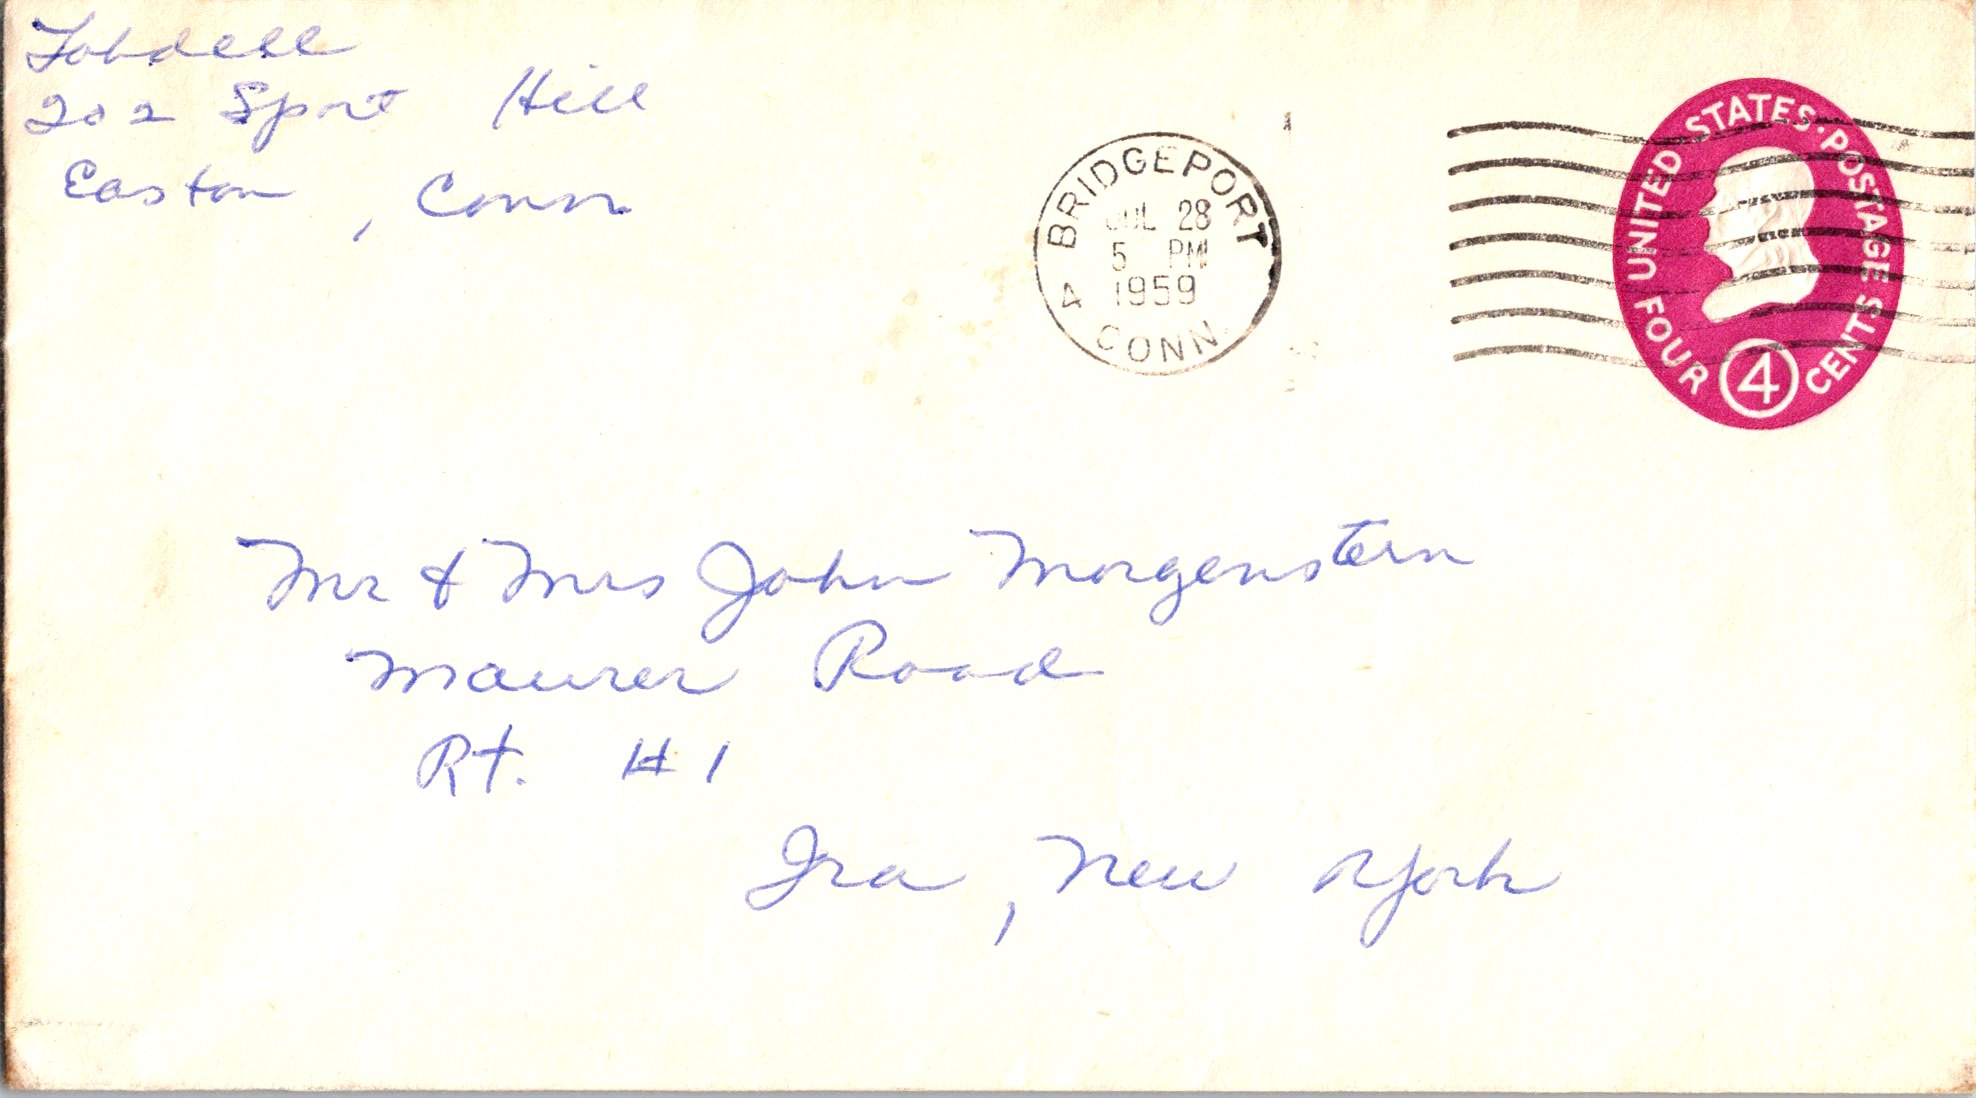 Lobdell
202 Sport Hill
Easton, Conn
BRIDGEPORT
JUL 28
5 PM
1959
4
CONN.
UNITED STATES POSTAGE
FOUR 4 CENTS
Mr & Mrs John Morgenstern
Maurer Road
Rt. #1
Ira, New York